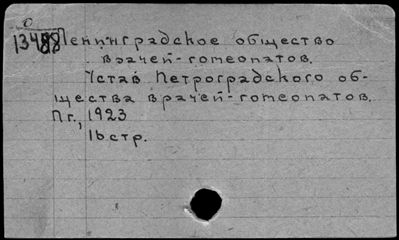 О
13488
Ленинградское общество
врачей-гомеопатов.
Устав Петроградского об-
щества врачей-гомеопатов.
Пг., 1923
16 стр.